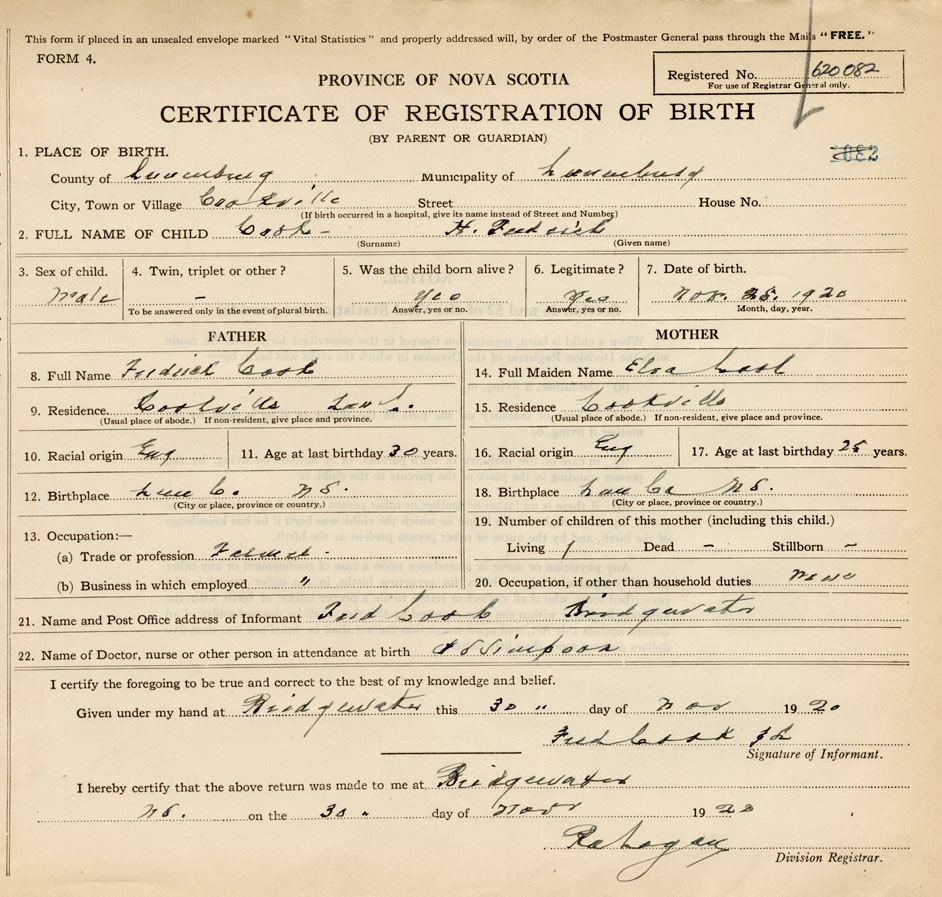 This form if placed in an unsealed envelope marked "Vital Statistics" and properly addressed will, by order of the Postmaster General pass through the Mails "FREE."
FORM 4.
Registered No. 620082
For use of Registrar General only.
PROVINCE OF NOVA SCOTIA
CERTIFICATE OF REGISTRATION OF BIRTH
(BY PARENT OR GUARDIAN)
1. PLACE OF BIRTH.
County of Lunenburg Municipality of Lunenburg
City, Town or Village Cookville Street House No.
(If birth occurred in a hospital, give its name instead of Street and Number)
2. FULL NAME OF CHILD Cook - H. Fredrick
(Surname) (Given name)
3. Sex of child. 4. Twin, triplet or other? 5. Was the child born alive? 6. Legitimate? 7. Date of birth.
Male – Yes Yes Nov. 25. 1920
To be answered only in the event of plural birth. Answer, yes or no. Answer, yes or no. Month, day, year.
FATHER MOTHER
8. Full Name Fredrick Cook 14. Full Maiden Name Elva Cook
9. Residence Cookville 15. Residence Cookville
(Usual place of abode.) If non-resident, give place and province. (Usual place of abode.) If non-resident, give place and province.
10. Racial origin Eng 11. Age at last birthday 30 years. 16. Racial origin Eng 17. Age at last birthday 25 years.
12. Birthplace Lun Co. N S. 18. Birthplace Lun Co N S.
(City or place, province or country.) (City or place, province or country.)
19. Number of children of this mother (including this child.)
13. Occupation:—
(a) Trade or profession Farmer - Living 1 Dead – Stillborn –
(b) Business in which employed " 20. Occupation, if other than household duties None
21. Name and Post Office address of Informant Fred Cook Bridgewater
22. Name of Doctor, nurse or other person in attendance at birth Simpson
I certify the foregoing to be true and correct to the best of my knowledge and belief.
Given under my hand at Bridgewater this 30 " day of Nov 1920
Fred Cook
Signature of Informant.
I hereby certify that the above return was made to me at Bridgewater
N S. on the 30 " day of Nov 1920
Division Registrar.